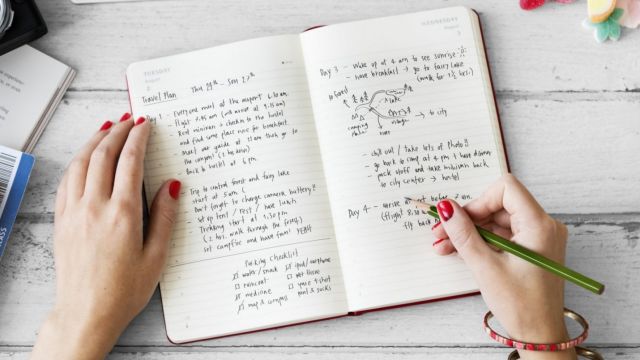 TUESDAY
Travel Plan Thu 24th - Sun 27th
Day 1 - Everyone meet at the airport 6.30 am
- Flight 7.45 am (will arrive at 9.15 am)
- Rent minivan + checkin to the hostel
and find some place nice for breakfast.
- Meet our guide at 11 am then go to
the campus! (2 hrs away)
- Back to hostel at 6 pm
Trip to central forest and fairy lake
start at 5 am (
Don't forget to charge camera battery!!
Set up tent / rest / have lunch
Trekking start at 1.30 pm
(2 hrs. walk through the forest)
Set campfire and have fun! YEAH
Packing Checklist
water / snack
ipod / earphone
raincoat
wet tissue
medicine
map & compass
& socks
WEDNESDAY
Day 3 - Wake up at 4 am to see sunrise
- have breakfast → go to fairy lake
(walk for 1½ hrs.)
forest
lake
camping
→ to city
- chill out / take lots of photo!!
- go back to camp at 4 pm + have dinner
- pack stuff and take minivan back
to city center → hostel
Day 4 - arrive before
(flight 8.30
fly back
CLASS